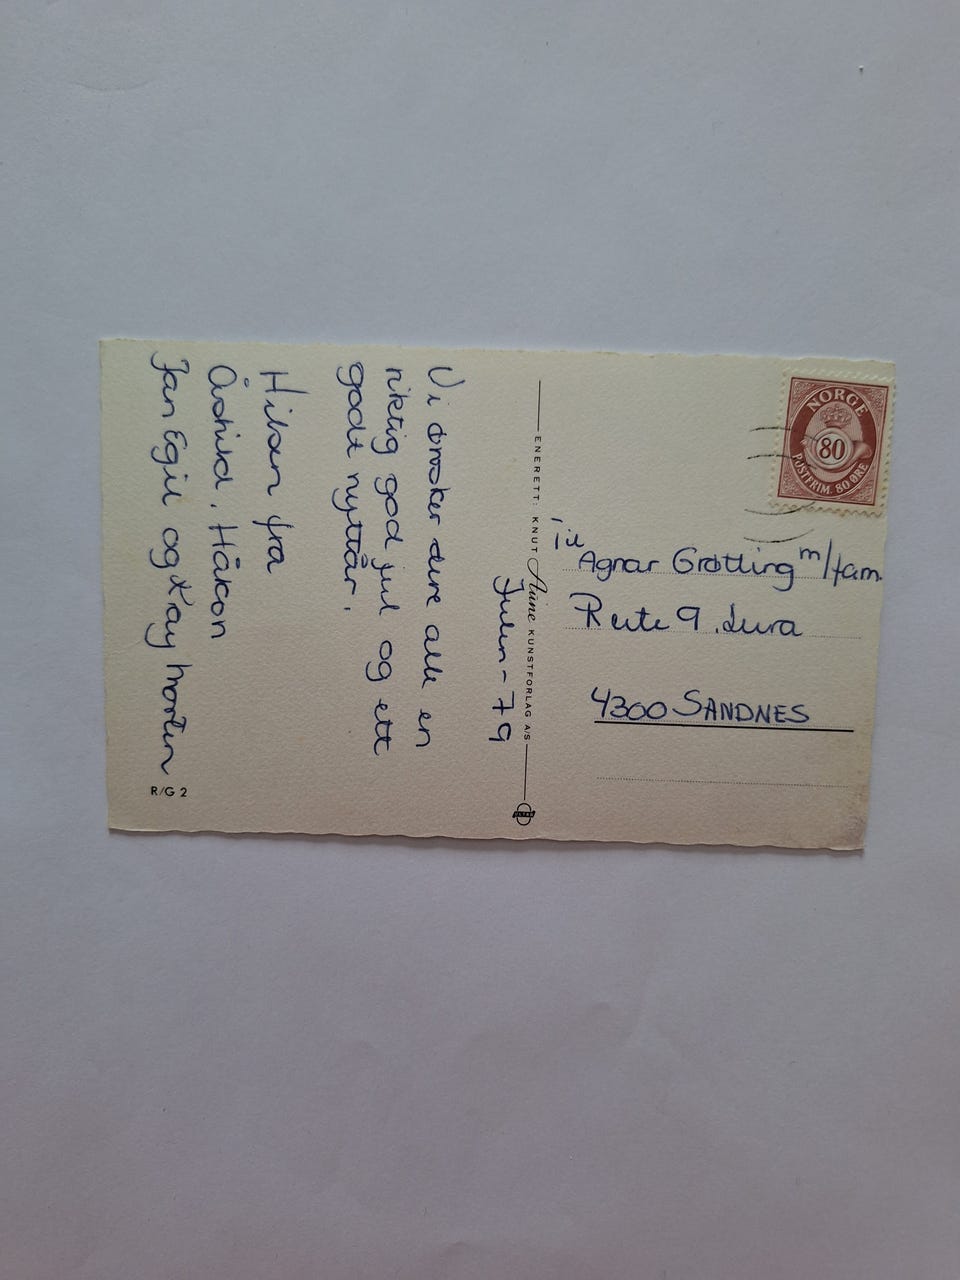 Julen - 79
Vi ønsker dere alle en
riktig god jul og ett
godt nyttår.
Hilsen fra
Åshild, Håkon
Jan Egil og Kay Morten
R/G 2
ENERETT: KNUT Aune KUNSTFORLAG A/S
NORGE
80
POSTFRIM. 80 ØRE
Til
Agnar Grøtting m/fam.
Rute 9. Lura
4300 SANDNES